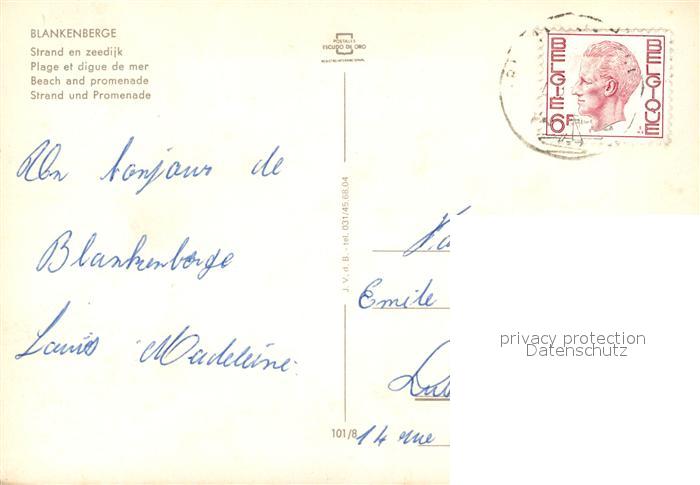 BLANKENBERGE
Strand en zeedijk
Plage et digue de mer
Beach and promenade
Strand und Promenade
POSTALES
ESCUDO DE ORO
BELGIE
BELGIQUE
6F
Un bonjour de
Blankenberge
Louis Madeleine
J. V. d. B. - tel. 031/45.68.04
Emile
14 rue
101/8
privacy protection
Datenschutz